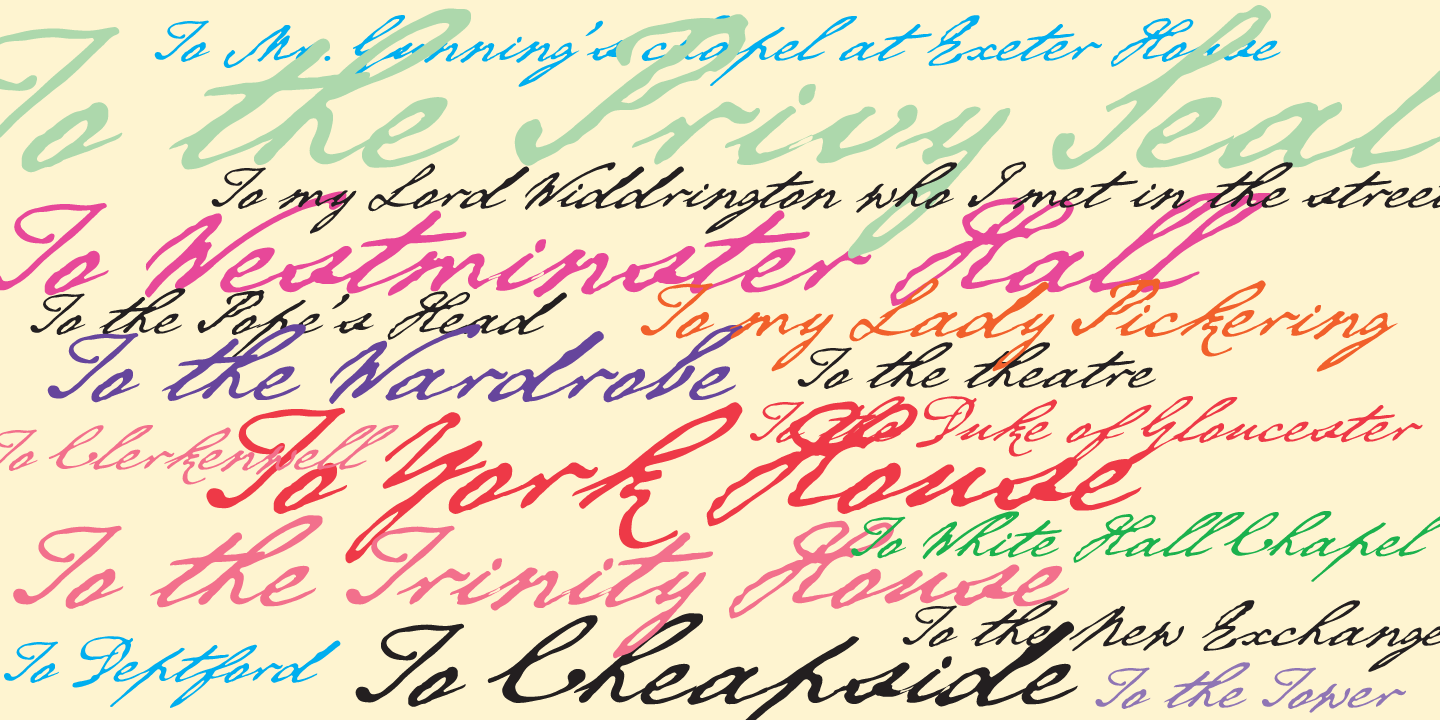 To Mr. Gunning's chapel at Exeter House
To the Privy Seal
To my Lord Widdrington who I met in the street
To Westminster Hall
To the Pope's Head
To my Lady Pickering
To the Wardrobe
To the theatre
To the Duke of Gloucester
To Clerkenwell
To York House
To White Hall Chapel
To the Trinity House
To the New Exchange
To Deptford
To Cheapside
To the Tower